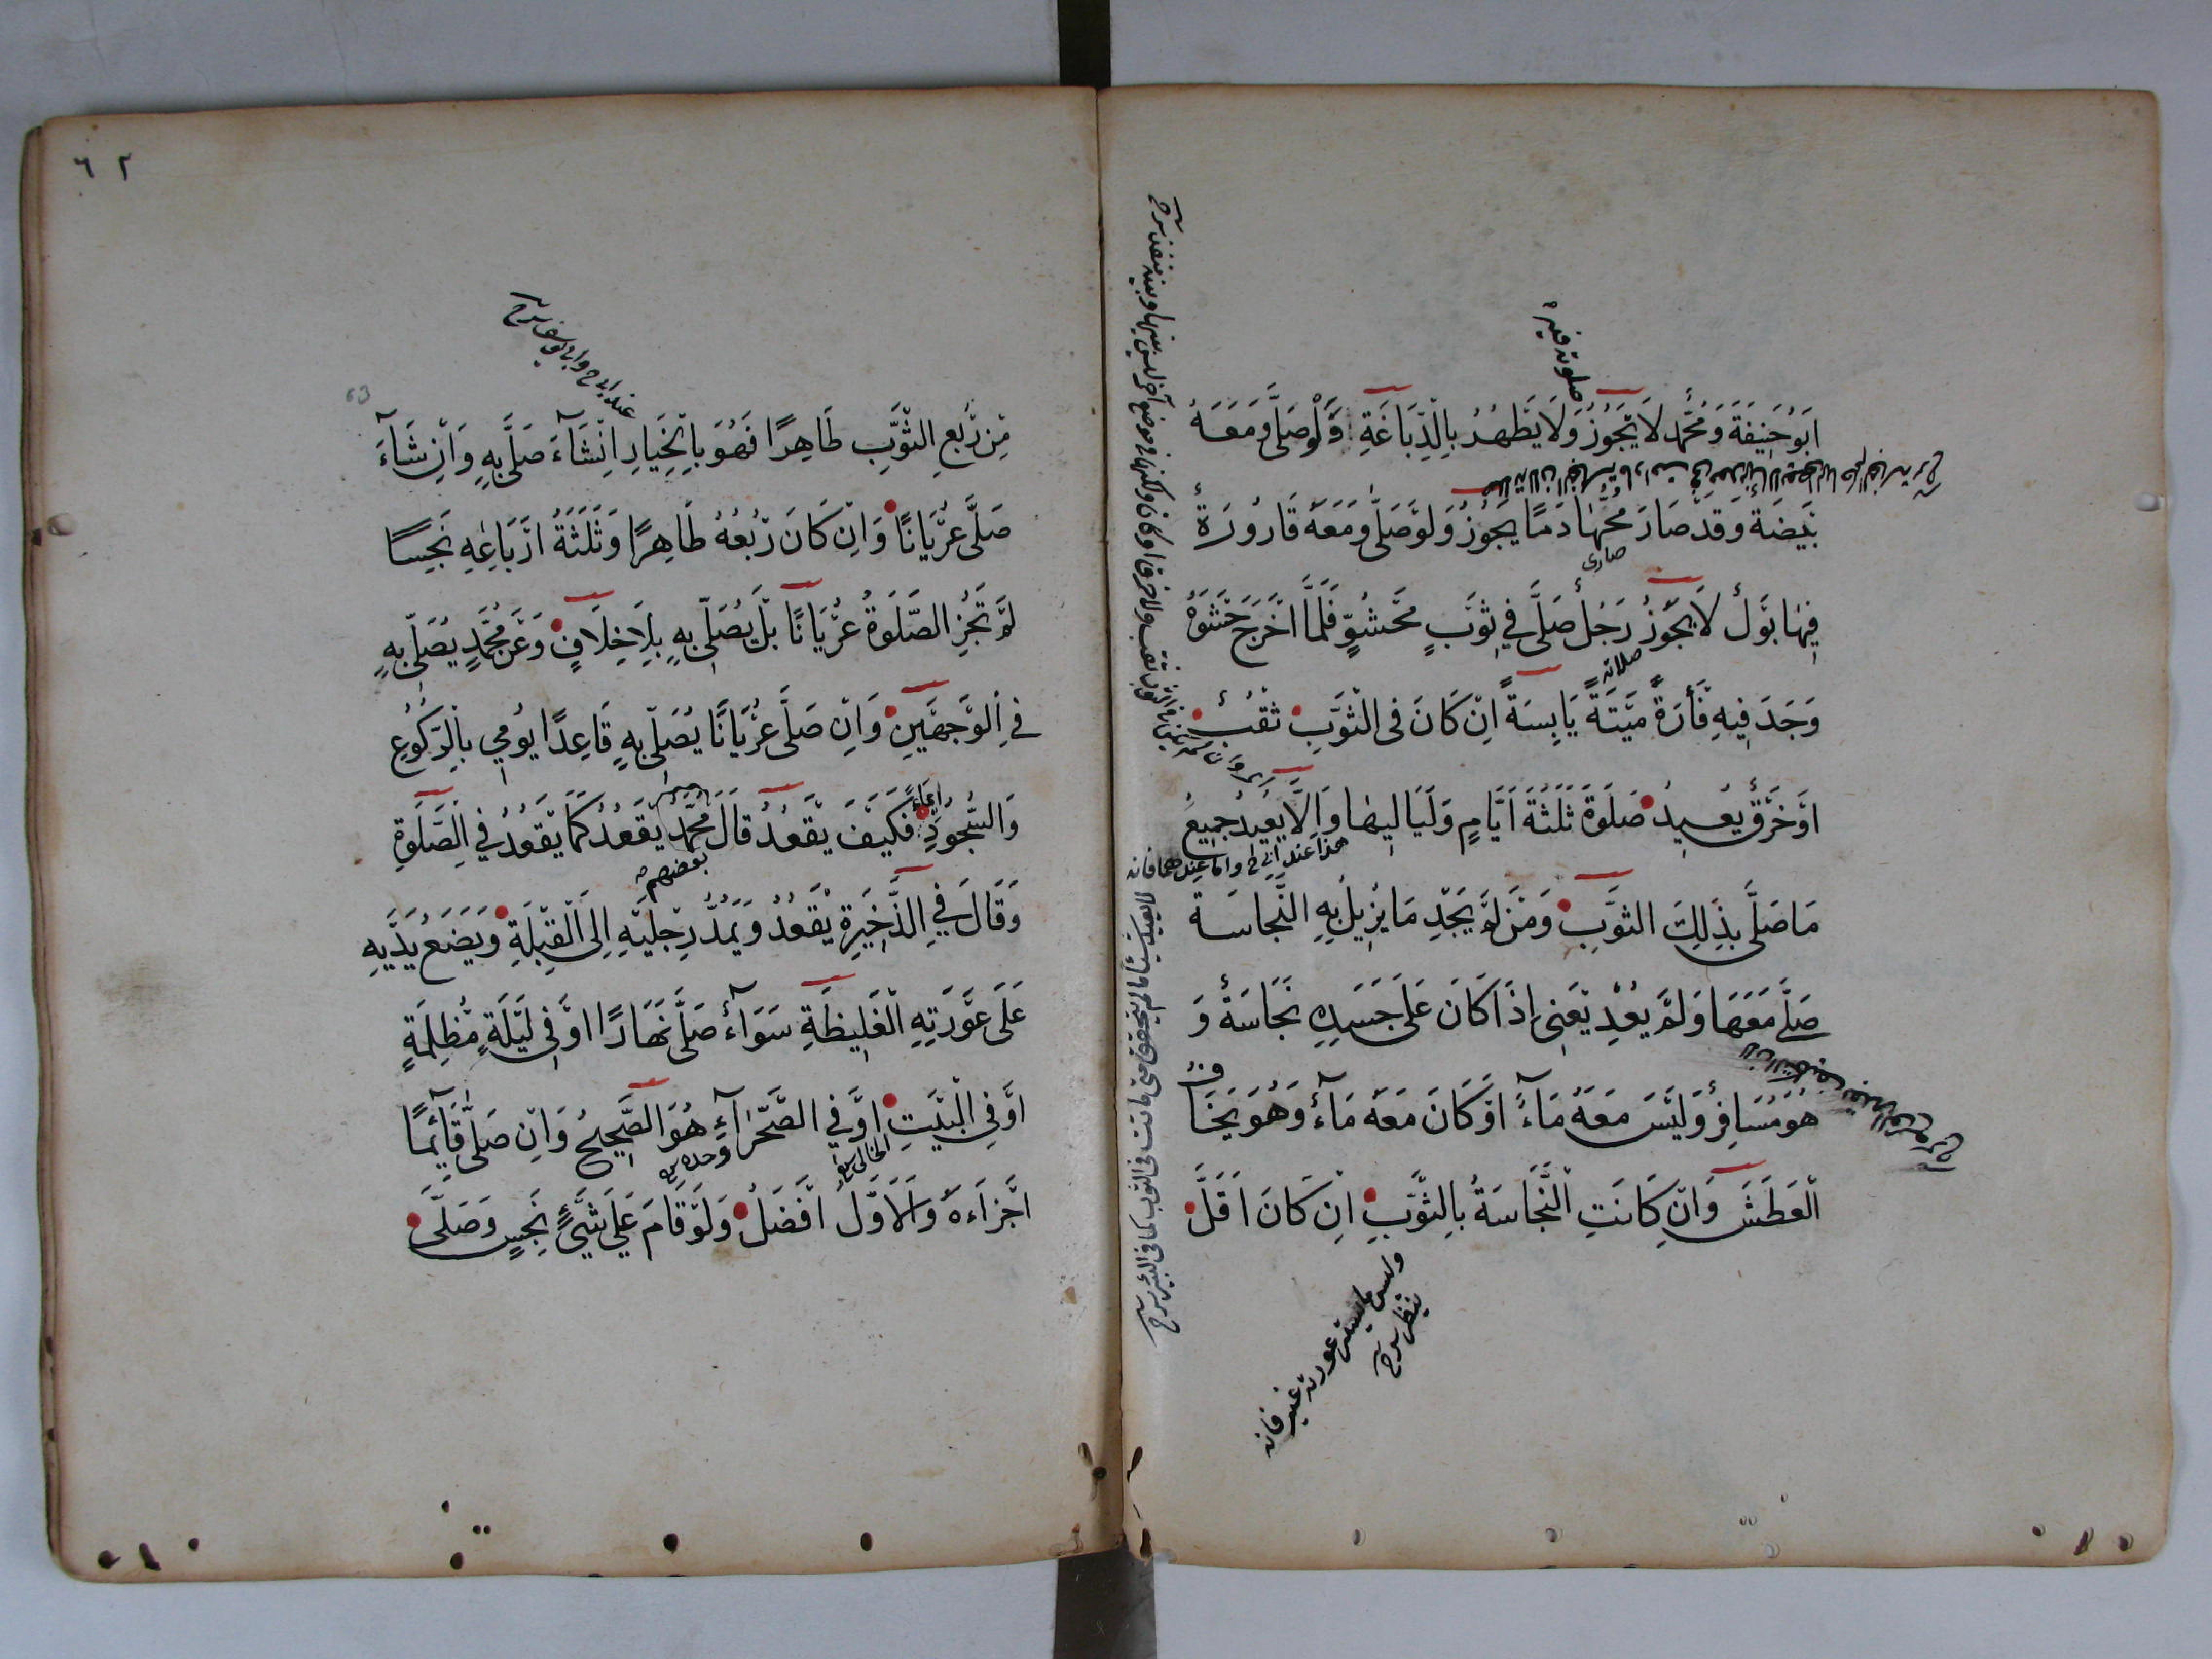 صلوته فيه
اَبُو حَنِيفَةَ وَمُحَمَّد لَا يَجُوزُ وَلَا يَطْهُرُ بِالدِّبَاغَةِ وَلَوْ صَلَّى وَمَعَهُ
بَيْضَة وَقَدْ صَارَ مُحُّهَا دَمًا يَجُوزُ وَلَوْ صَلَّى وَمَعَهُ قَارُورَةٌ
فِيهَا بَوْلٌ لَا يَجُوزُ رَجُلٌ صَلَّى فِي ثَوْبٍ مَحْشُوٍّ فَلَمَّا اَخْرَجَ حَشْوَهُ
صلاته
وَجَدَ فِيهِ فَأْرَةً مَيْتَةً يَابِسَةً اِنْ كَانَ فِى الثَّوْبِ ثَقْبٌ
اَوْ خَرْقٌ يُعِيدُ صَلَوةَ ثَلَثَةَ اَيَّامٍ وَلَيَالِيهَا وَاِلَّا يُعِيدُ جَمِيعَ
هذا عند ابي ح واما عندهما فانه
لا يعيد شيئا ما لم يتحقق متى ماتت فى الثوب كما فى البئر شرح
مَا صَلَّى بِذَلِكَ الثَّوْبِ وَمَنْ لَمْ يَجِدْ مَا يُزِيلُ بِهِ النَّجَاسَة
صَلَّى مَعَهَا وَلَمْ يُعِدْ يَعْنِى اِذَا كَانَ عَلَى جَسَدِهِ نَجَاسَةٌ وَ
هُوَ مُسَافِرٌ وَلَيْسَ مَعَهُ مَاءٌ اَوْ كَانَ مَعَهُ مَاءٌ وَهُوَ يَخَافُ
الْعَطَشَ وَاِنْ كَانَتِ النَّجَاسَةُ بِالثَّوْبِ اِنْ كَانَ اَقَلَّ
وليس ما يستر عورته غيره فانه
ينظر شرح
٦٢
63
عند ابى ح وابى يوسف شرح
مِنْ رُبْعِ الثَّوْبِ طَاهِرًا فَهُوَ بِالْخِيَارِ اِنْ شَآءَ صَلَّى بِهِ وَاِنْ شَآءَ
صَلَّى عُرْيَانًا وَاِنْ كَانَ رُبْعُهُ طَاهِرًا وَثَلَثَةُ اَرْبَاعِهِ نَجِسًا
لَمْ تَجُزِ الصَّلَوةُ عُرْيَانًا بَلْ يُصَلِّى بِهِ بِلَا خِلَافٍ وَعَنْ مُحَمَّدٍ يُصَلِّى بِهِ
فِى الْوَجْهَيْنِ وَاِنْ صَلَّى عُرْيَانًا يُصَلِّى بِهِ قَاعِدًا يُومِي بِالرُّكُوعِ
ايماء
وَالسُّجُودِ فَكَيْفَ يَقْعُدُ قَالَ مُحَمَّدٌ يَقْعُدُ كَمَا يَقْعُدُ فِي الصَّلَوةِ
بعضهم
وَقَالَ فِي الذَّخِيرَةِ يَقْعُدُ وَيَمُدُّ رِجْلَيْهِ اِلَى الْقِبْلَةِ وَيَضَعُ يَدَيْهِ
عَلَى عَوْرَتِهِ الْغَلِيظَةِ سَوَآءٌ صَلَّى نَهَارًا اَوْ فِى لَيْلَةٍ مُظْلِمَةٍ
اَوْ فِى الْبَيْتِ اَوْ فِي الصَّحْرَآءِ هُوَ الصَّحِيحُ وَاِنْ صَلَّى قَآئِمًا
اَجْزَاَهُ وَالْاَوَّلُ اَفْضَلُ وَلَوْ قَامَ عَلَى شَيْءٍ نَجِسٍ وَصَلَّى